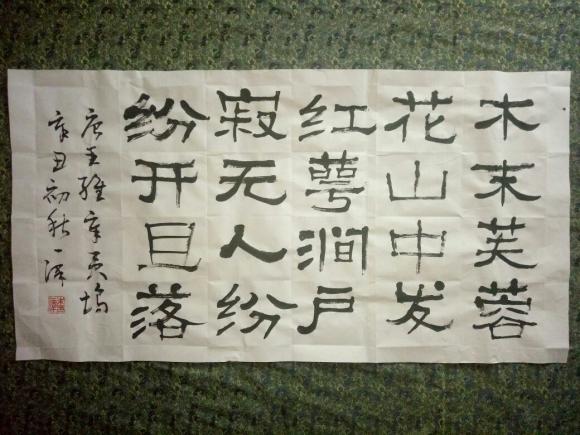 木末芙蓉
花山中发
红萼涧户
寂无人纷
纷开旦落
唐王维辛夷坞
辛丑初秋一